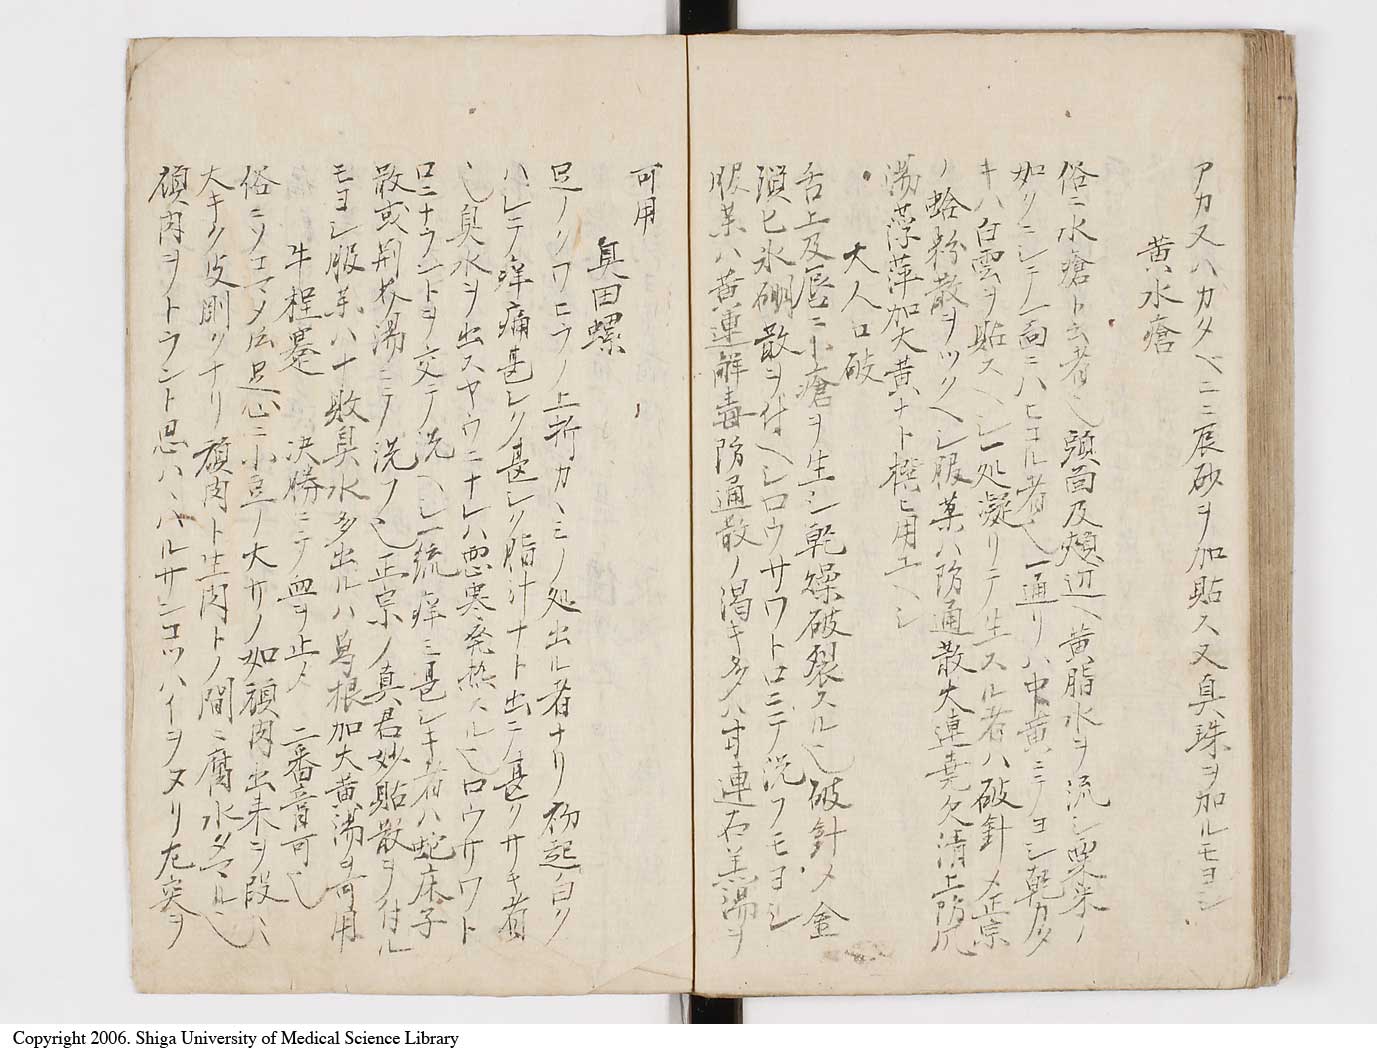 アカスハカタベニニ辰砂ヲ加貼ス又真珠ヲ加ルモヨシ
黄水瘡
俗ニ水瘡ト云者也頭面及頬辺ヘ黄脂水ヲ流シ粟米ノ
如クニシテ一面ニハヒコル者也一通リハ中黄ニテヨシ乾カタ
キハ白雲ヲ貼スヘシ一処凝リテ生スル者ハ破針メ正宗
ノ蛤粉散ヲツクヘシ服薬ハ防通散大連堯欠清上防風
湯浮萍加大黄ナト撰ヒ用ユヘシ
大人口破
舌上及唇ニ小瘡ヲ生シ乾燥破裂スル也破針メ金
鎖匕氷硼散ヲ付ヘシロウサワトロニテ洗フモヨシ
服薬ハ黄連解毒防通散ノ渇キ多クハ甘連石羔湯ヲ
可用
臭田螺
足ノクワヒラノ上折カヽミノ処出ル者ナリ初起白ク
ハレテ痒痛甚シク甚シク脂汁ナト出ニノ甚クサキ者
也臭水ヲ出スヤウニナレハ悪寒発熱スル也ロウサワト
ロニナウントヲ交テ洗ヘシ一統痒ミ甚シキ者ハ蛇床子
散或荊芥湯ニテ洗フ也正宗ノ真君妙貼散ヲ付ル
モヨシ服薬ハ十敗臭水多出ルハ葛根加大黄湯ヲ可用
牛程蹇 決勝ニテ血ヲ止メ 二番膏可也
俗ニソコマメ云足心ニ小豆ノ大サノ如頑肉出来ヲ段々
大キク皮剛クナリ頑肉ト生肉トノ間ニ腐水タマル也
頑肉ヲトラント思ハヽハルサンコツハイヲヌリ左突ヲ
Copyright 2006. Shiga University of Medical Science Library